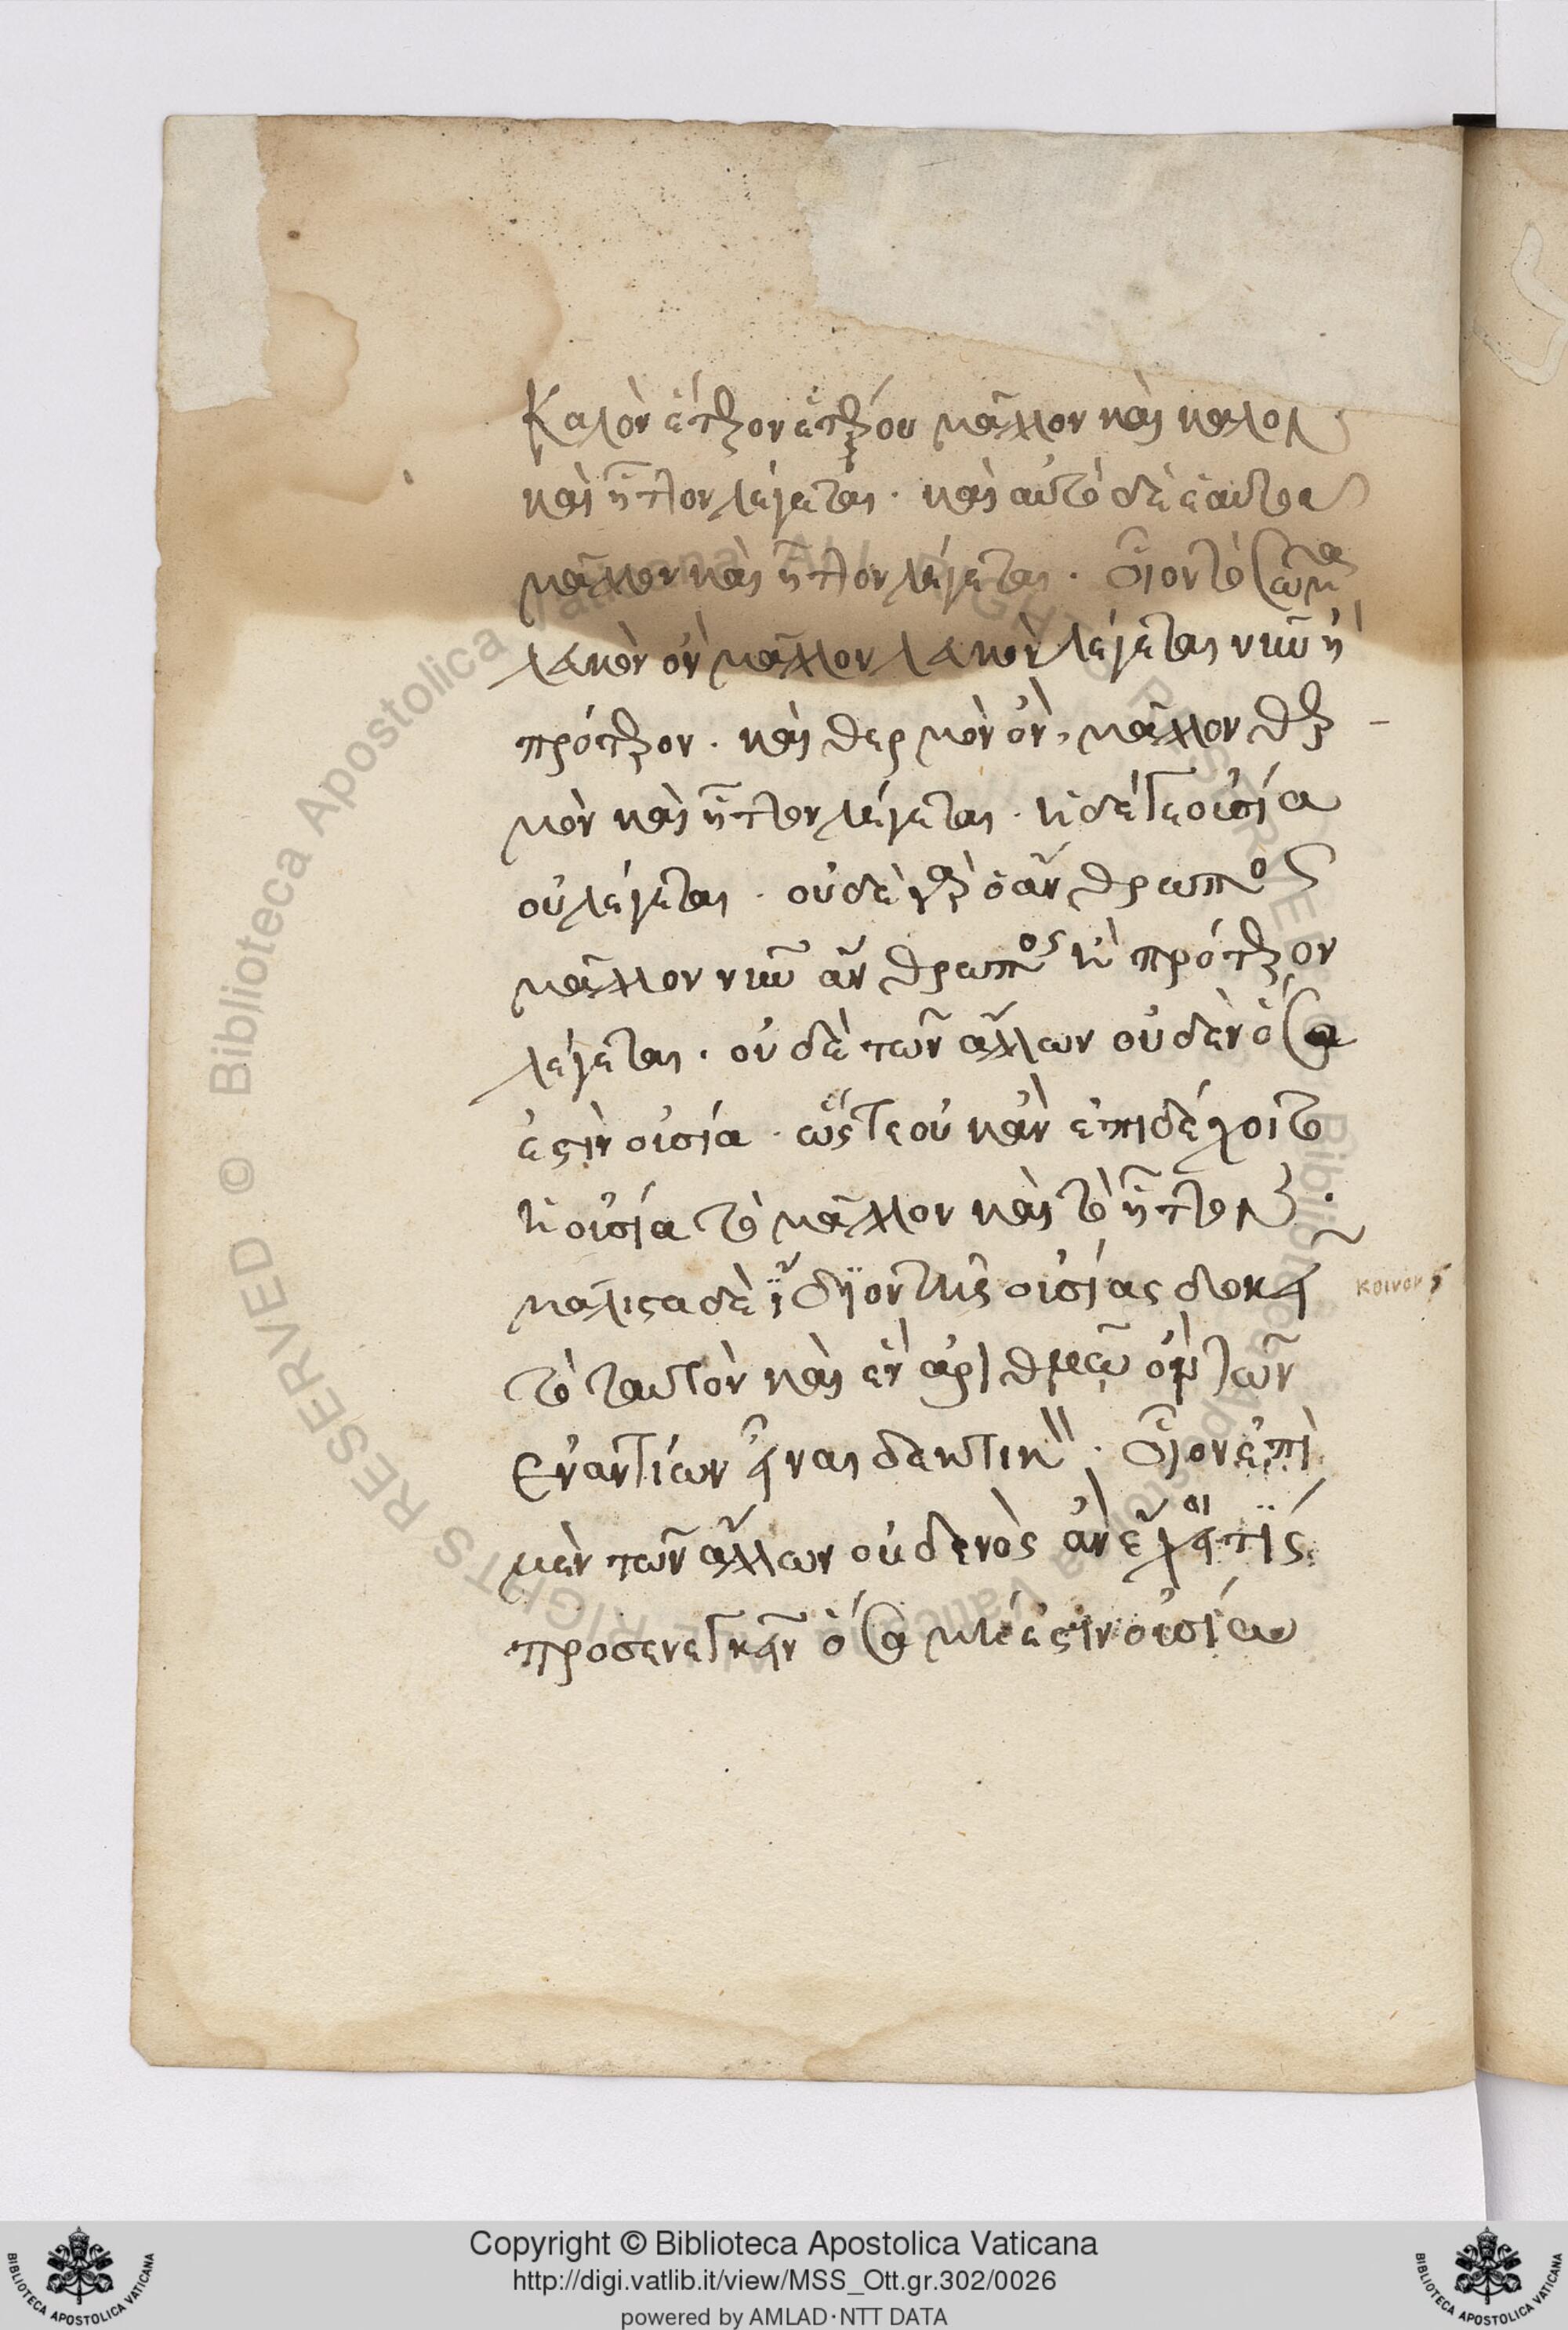 Καλὸν ἕτερον ἑτέρου μᾶλλον καὶ καλὸν
καὶ ἧττον λέγεται · καὶ αὐτὸ δὲ ἑαυτοῦ
μᾶλλον καὶ ἧττον λέγεται · οἷον τὸ σῶμα
λευκὸν ὂν μᾶλλον λευκὸν λέγεται νῦν ἢ
πρότερον · καὶ θερμὸν ὂν, μᾶλλον θερ-
μὸν καὶ ἧττον λέγεται · ἡ δέ γε οὐσία
οὐ λέγεται · οὐδὲ γὰρ ὁ ἄνθρωπος
μᾶλλον νῦν ἄνθρωπος ἢ πρότερον
λέγεται · οὐδὲ τῶν ἄλλων οὐδὲν ὅσα
ἐστὶν οὐσία · ὥστε οὐκ ἂν ἐπιδέχοιτο
ἡ οὐσία τὸ μᾶλλον καὶ τὸ ἧττον ·
μάλιστα δὲ ἴδιον τῆς οὐσίας δοκεῖ
τὸ ταὐτὸν καὶ ἓν ἀριθμῷ ὂν τῶν
ἐναντίων εἶναι δεκτικὸν · οἷον ἐπὶ
μὲν τῶν ἄλλων οὐδενὸς ἂν ἔχοι τίς
προσενεγκεῖν ὅσα μή ἐστιν οὐσία
κοινον
Copyright © Biblioteca Apostolica Vaticana
http://digi.vatlib.it/view/MSS_Ott.gr.302/0026
powered by AMLAD·NTT DATA
© Biblioteca Apostolica Vaticana ALL RIGHTS RESERVED
BIBLIOTECA APOSTOLICA VATICANA
BIBLIOTECA APOSTOLICA VATICANA